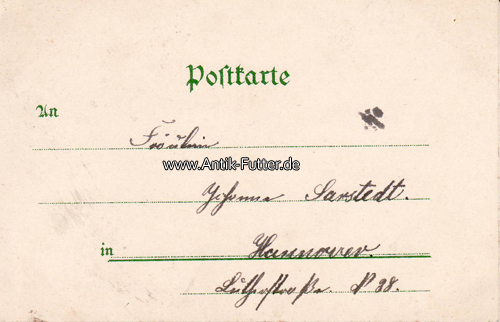 Postkarte
An
Fräulein
www.Antik-Futter.de
Johanna Sarstedt.
in Hannover.
Lutherstraße. N 28.